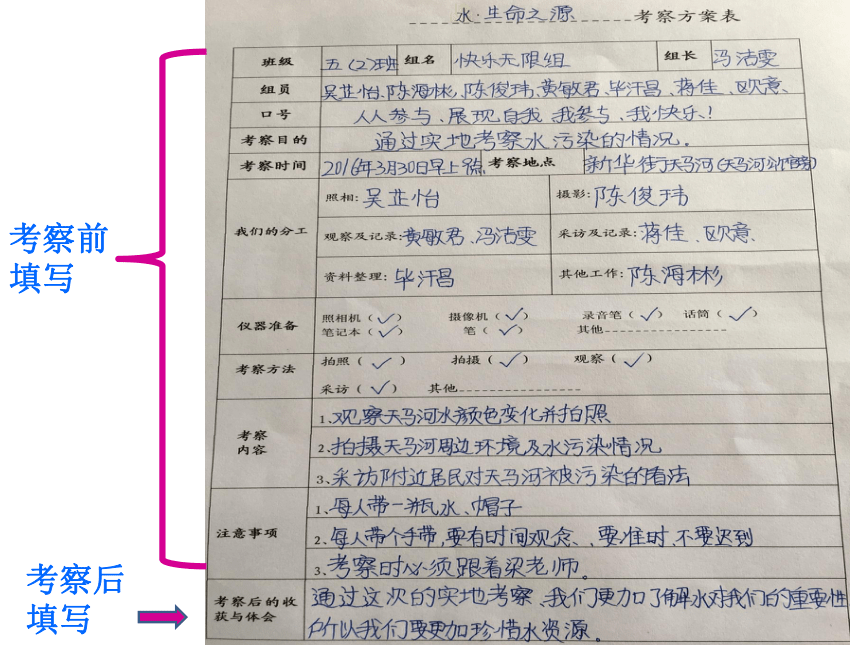 水·生命之源 考察方案表
班级 五(2)班 组名 快乐无限组 组长 冯洁雯
组员 吴芷怡、陈海彬、陈俊玮、黄敏君、毕汗昌、蒋佳、欧意、
口号 人人参与、展现自我 我参与、我快乐!
考察目的 通过实地考察水污染的情况。
考察时间 2016年3月30日早上 考察地点 新华街天马河
我们的分工 照相:吴芷怡 摄影:陈俊玮
观察及记录:黄敏君、冯洁雯 采访及记录:蒋佳、欧意、
资料整理:毕汗昌 其他工作:陈海彬
仪器准备 照相机(✓) 摄像机(✓) 录音笔(✓) 话筒(✓)
笔记本(✓) 笔(✓) 其他
考察方法 拍照(✓) 拍摄(✓) 观察(✓)
采访(✓) 其他
考察
内容
1、观察天马河水颜色变化并拍照
2、拍摄天马河周边环境及水污染情况
3、采访附近居民对天马河被污染的看法
注意事项
1、每人带一瓶水、帽子
2、每人带个手带,要有时间观念、,要准时,不要迟到
3、考察时必须跟着梁老师。
考察后的收
获与体会
通过这次的实地考察、我们更加了解水对我们的重要性
所以我们要更加珍惜水资源。
考察前
填写
考察后
填写